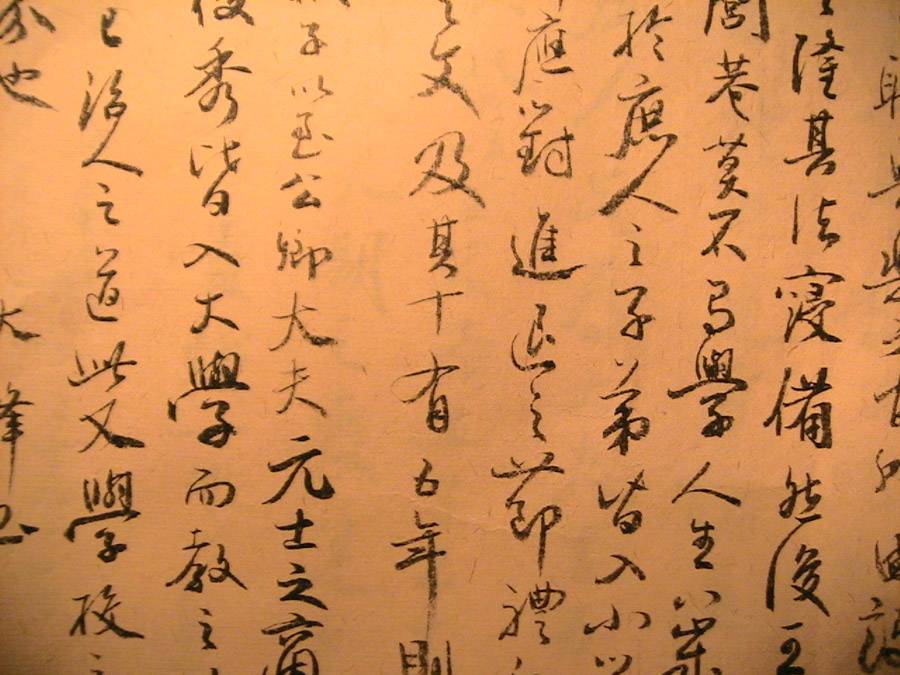 職典樂之官所由設
之隆其法寖備然後王
閭巷莫不有學人生八歲
於庶人之子弟皆入小學
應對進退之節禮
之文及其十有五年則
子以至公卿大夫元士之適
俊秀皆入大學而教之
已治人之道此又學校之
分也 大峯